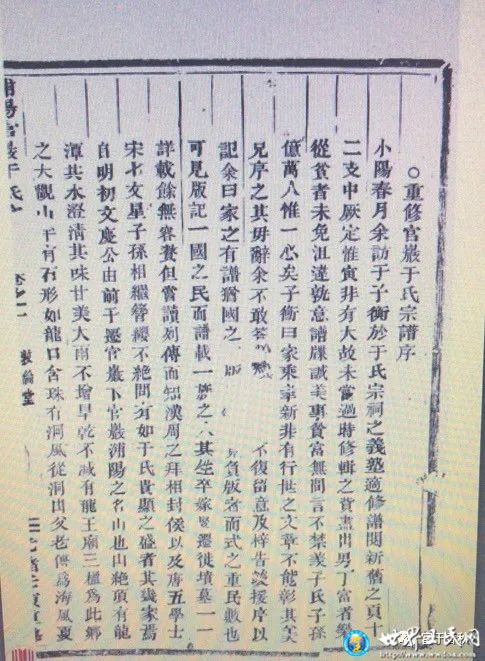 ○重修官巖于氏宗譜序
小陽春月余訪于子衡於于氏宗祠之義塾適修譜閱新舊之頁十
二支中厥定惟寅非有大故未嘗過時修輯之資盡出男丁富者樂
從貧者未免沮達孰意譜牒誠美事貧富無間言不禁羨于氏子孫
億萬人惟一心矣子衡曰家乘率新非有行世之文章不能彰其美
兄序之其毋辭余不敢答 不復留意及梓告竣援序以
記余曰家之有譜猶國之 版 負版者而式之重民數也
可見版記一國之民而譜載一族之人其生卒嫁娶遷徙墳墓一一
詳載餘無容贅但嘗讀列傳而知漢周之拜相封侯以及唐五學士
宋七文星子孫相繼簪纓不絕問有如于氏貴顯之盛者其幾家焉
自明初文慶公由前于遷官巖下官巖浦陽之名山也山絕頂有龍
潭其水澄清其味甘美大雨不增旱乾不減有龍王廟三楹為此鄉
之大觀山半有石形如龍口含珠有洞風從洞出父老傳為海風夏
浦陽官巖于氏 卷之一 敘倫堂
www.wedoa.com